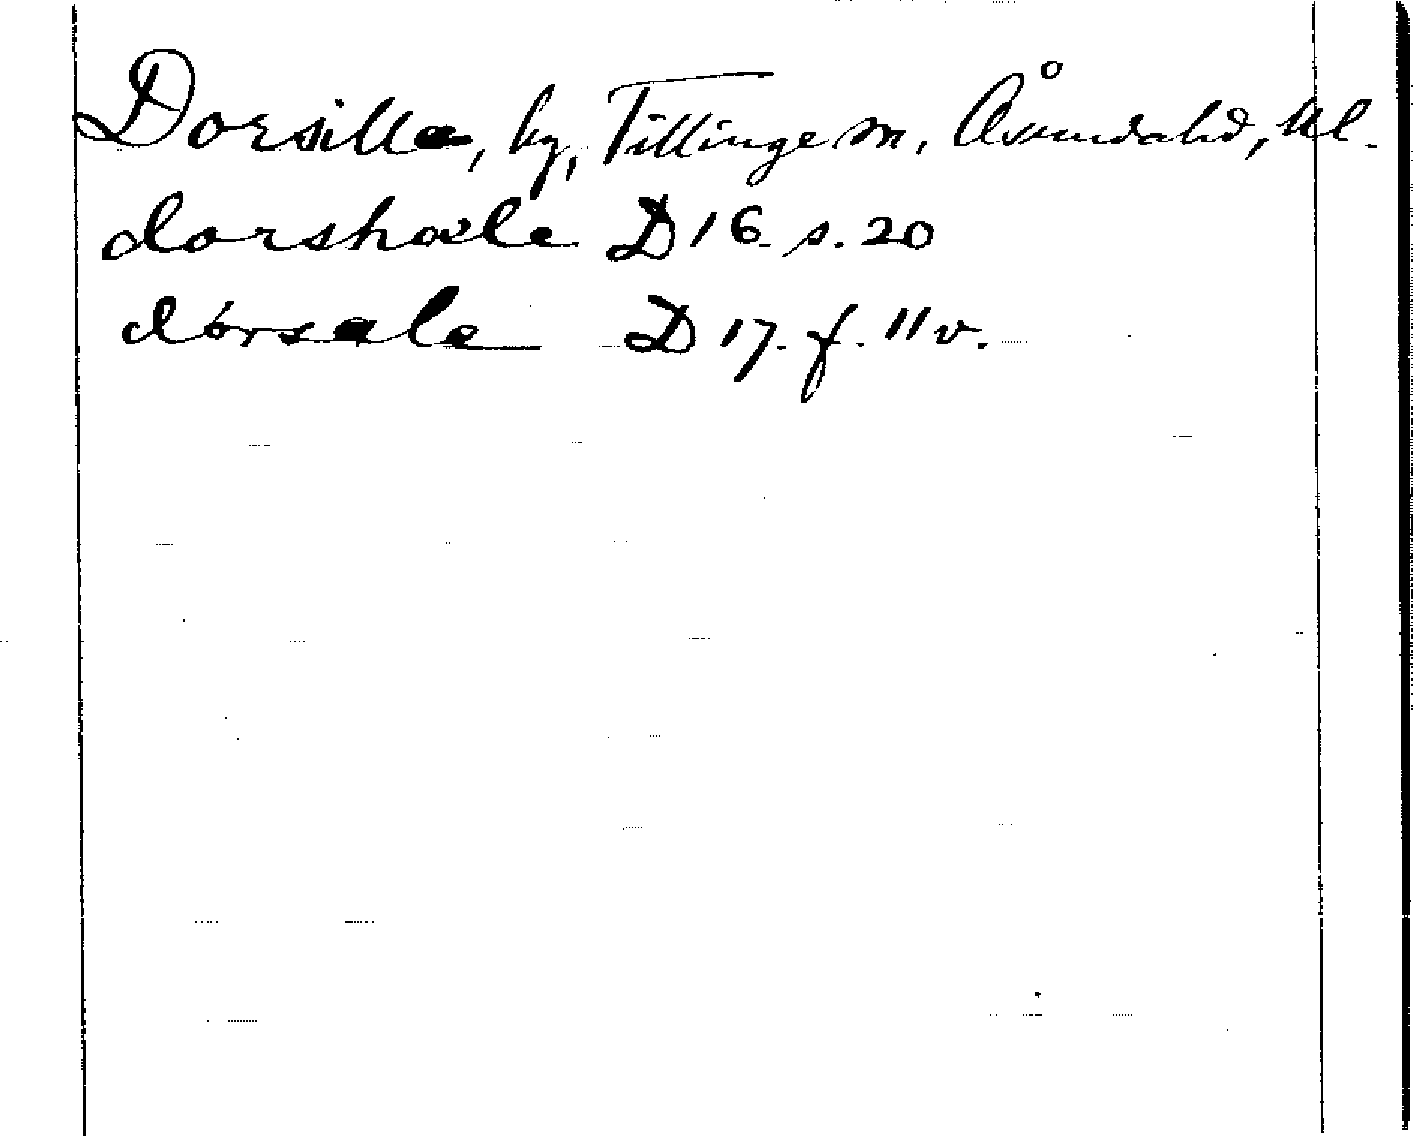 Dorsilla, by, Tillinge sn, Åsundahd, Upl.
dorshæle D 16 s. 20
dorsale D 17. f. 11 v.